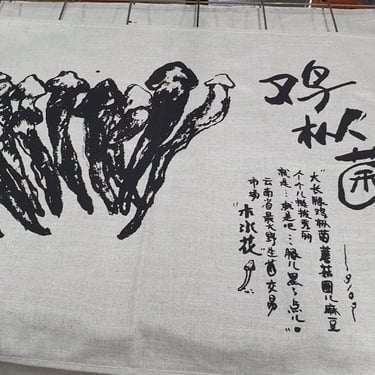 鸡枞菌
"大长腿鸡枞菌蘑菇圈儿麻豆
个个儿挺拔秀丽
就是…就是吧…腿儿黑了点儿"
云南省最大野生菌交易
市场"木水花"